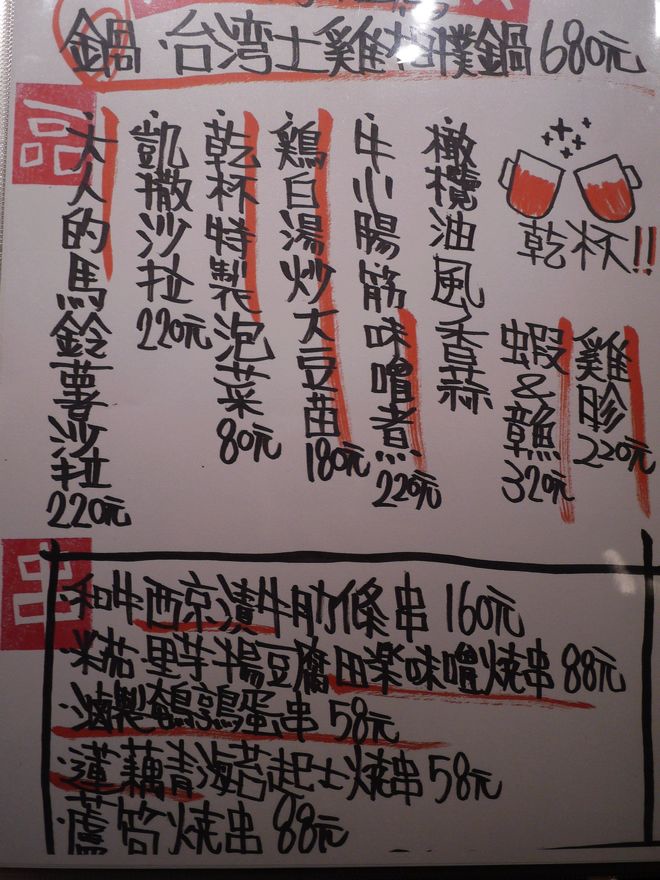 鍋・台湾土雞相撲鍋680元
一品
・大人的馬鈴薯沙拉220元
・凱撒沙拉220元
・乾杯特製泡菜80元
・鶏白湯炒大豆苗180元
・牛小腸筋味噌煮220元
・橄欖油風香蒜
蝦&章魚320元
雞胗220元
乾杯!!
串
・和牛西京漬牛肋條串160元
・米茄・里芋揚豆腐田楽味噌燒串88元
・滷製鵪鶉蛋串58元
・蓮藕青海苔起士燒串58元
・蘆筍燒串88元